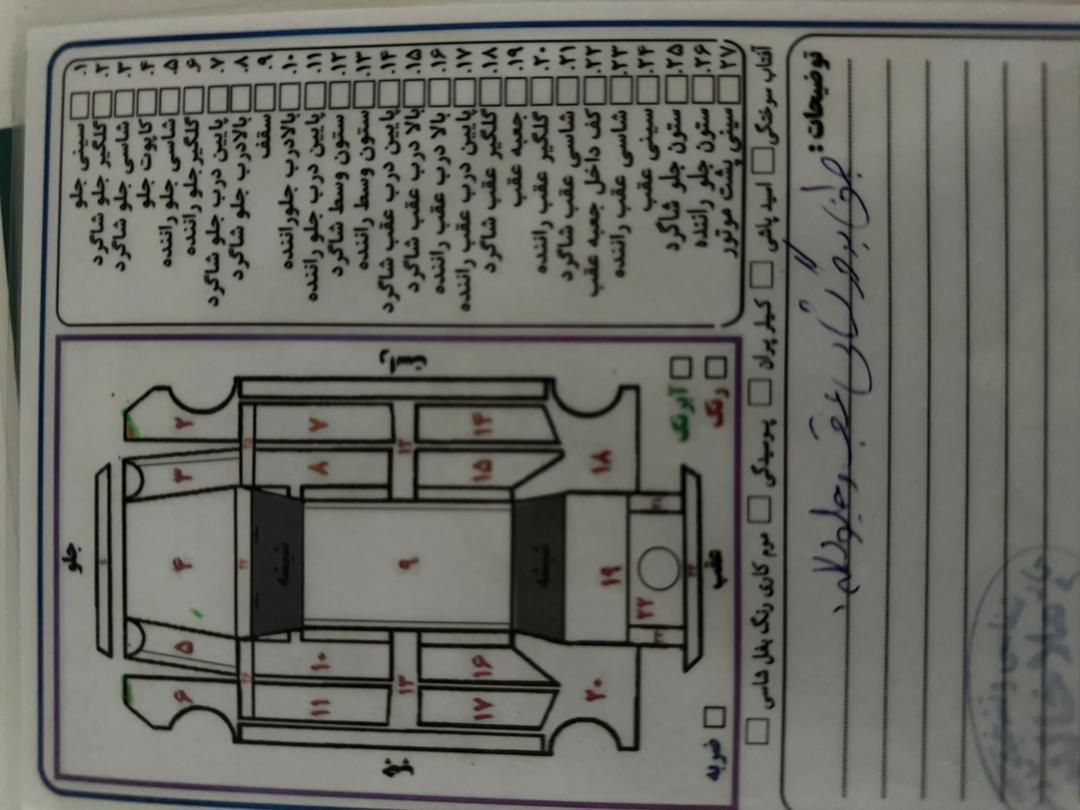 ۱. سینی جلو
۲. گلگیر جلو شاگرد
۳. شاسی جلو شاگرد
۴. کاپوت جلو
۵. شاسی جلو راننده
۶. گلگیر جلو راننده
۷. پایین درب جلو شاگرد
۸. بالا درب جلو شاگرد
۹. سقف
۱۰. بالا درب جلو راننده
۱۱. پایین درب جلو راننده
۱۲. ستون وسط شاگرد
۱۳. ستون وسط راننده
۱۴. پایین درب عقب شاگرد
۱۵. بالا درب عقب شاگرد
۱۶. بالا درب عقب راننده
۱۷. پایین درب عقب راننده
۱۸. گلگیر عقب شاگرد
۱۹. جعبه عقب
۲۰. گلگیر عقب راننده
۲۱. شاسی عقب شاگرد
۲۲. کف داخل جعبه عقب
۲۳. شاسی عقب راننده
۲۴. سینی عقب
۲۵. ستون جلو شاگرد
۲۶. ستون جلو راننده
۲۷. سینی پشت موتور
جلو
۲ ۷ ۱۲ ۱۴ ۱۸
۳ ۸ ۱۵
۴ شیشه ۹ شیشه ۱۹ ۲۲
۵ ۱۰ ۱۶
۶ ۱۱ ۱۳ ۱۷ ۲۰
عقب
آبرنگ
رنگ
ضربه
آفتاب سوختگی اسید پاشی کیلر پران پوسیدگی موم کاری رنگ بغل شاسی
توضیحات:
عقب و جلو